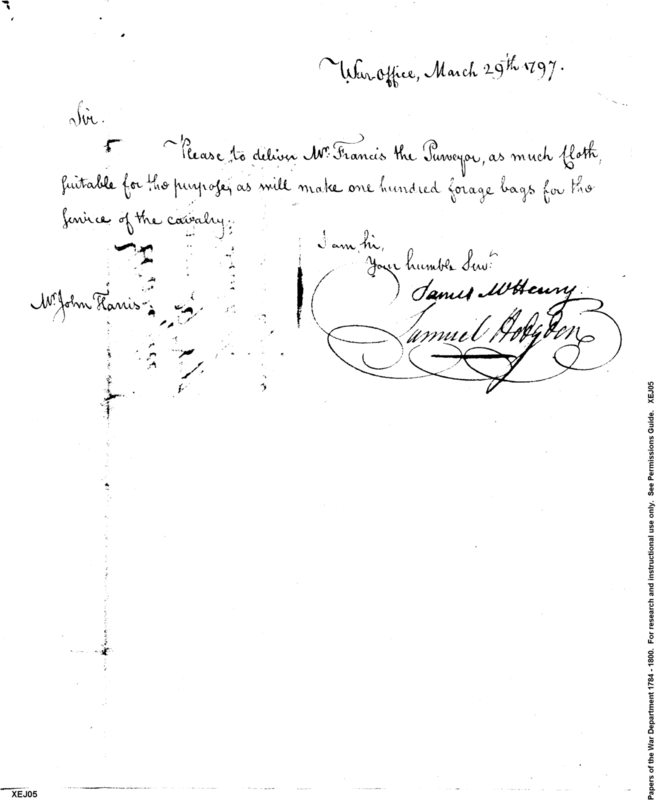 War Office, March 29th 1797.
Sir.
Please to deliver Mr. Francis the Purveyor, as much Cloth,
suitable for the purpose, as will make one hundred forage bags for the
service of the cavalry.
I am sir,
Your humble Servt.
James McHenry.
Mr. John Harris
Samuel Hodgdon
Papers of the War Department 1784 - 1800. For research and instructional use only. See Permissions Guide. XEJ05
XEJ05